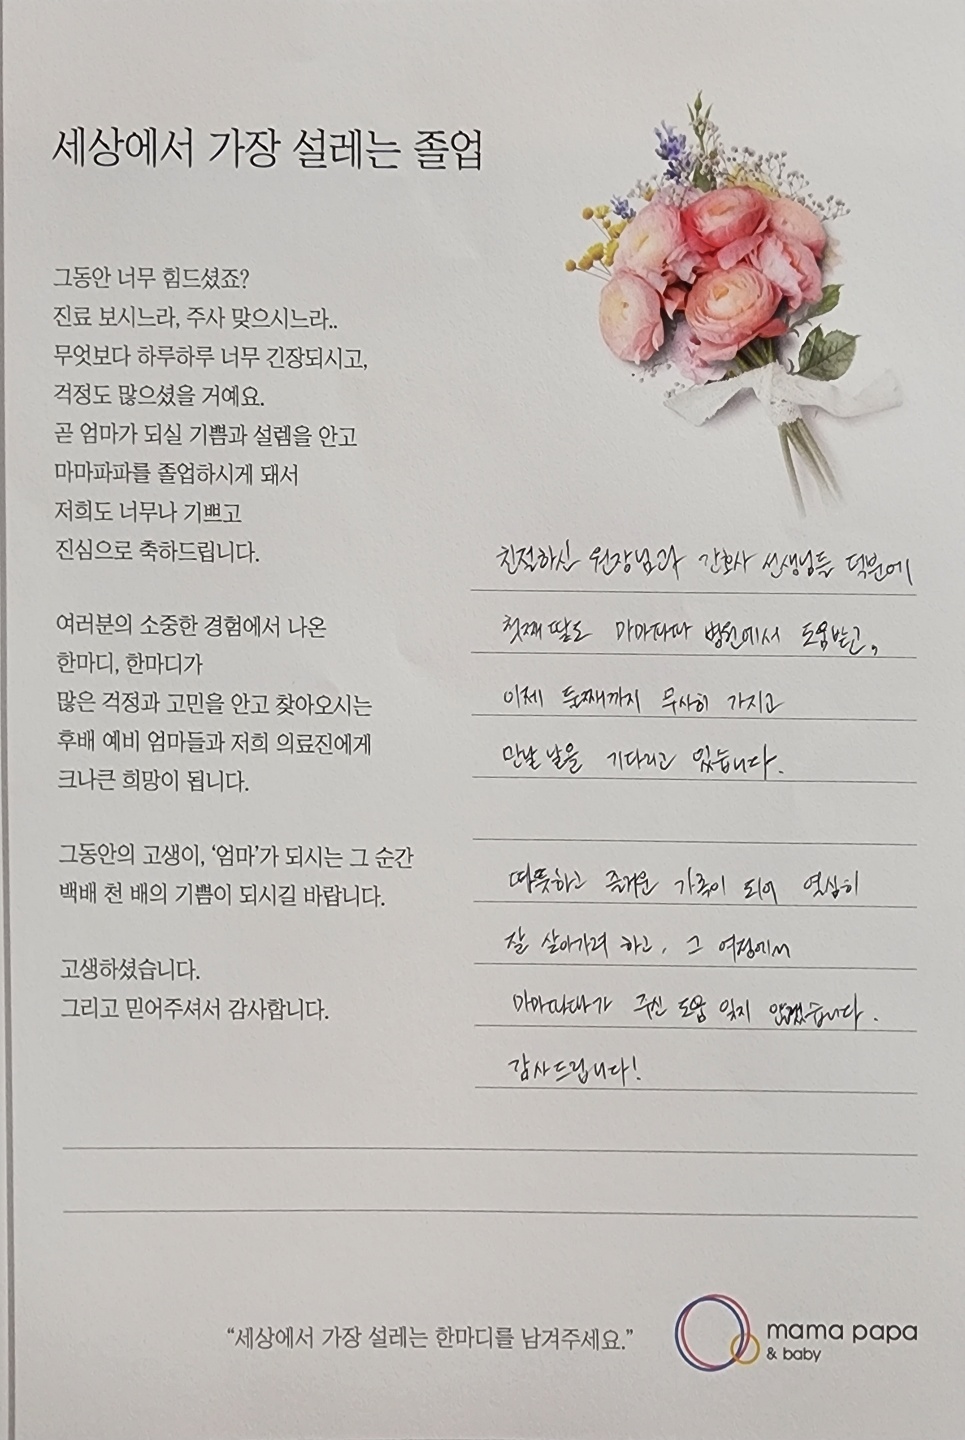 세상에서 가장 설레는 졸업
그동안 너무 힘드셨죠?
진료 보시느라, 주사 맞으시느라..
무엇보다 하루하루 너무 긴장되시고,
걱정도 많으셨을 거예요.
곧 엄마가 되실 기쁨과 설렘을 안고
마마파파를 졸업하시게 돼서
저희도 너무나 기쁘고
진심으로 축하드립니다.
여러분의 소중한 경험에서 나온
한마디, 한마디가
많은 걱정과 고민을 안고 찾아오시는
후배 예비 엄마들과 저희 의료진에게
크나큰 희망이 됩니다.
그동안의 고생이, ‘엄마’가 되시는 그 순간
백배 천 배의 기쁨이 되시길 바랍니다.
고생하셨습니다.
그리고 믿어주셔서 감사합니다.
친절하신 원장님과 간호사 선생님들 덕분에
첫째 딸도 마마파파 병원에서 도움받고,
이제 둘째까지 무사히 가지고
만날 날을 기다리고 있습니다.
따뜻하고 즐거운 가족이 되어 열심히
잘 살아가려 하고, 그 여정에서
마마파파가 주신 도움 잊지 않겠습니다.
감사드립니다!
“세상에서 가장 설레는 한마디를 남겨주세요.”
mama papa
& baby